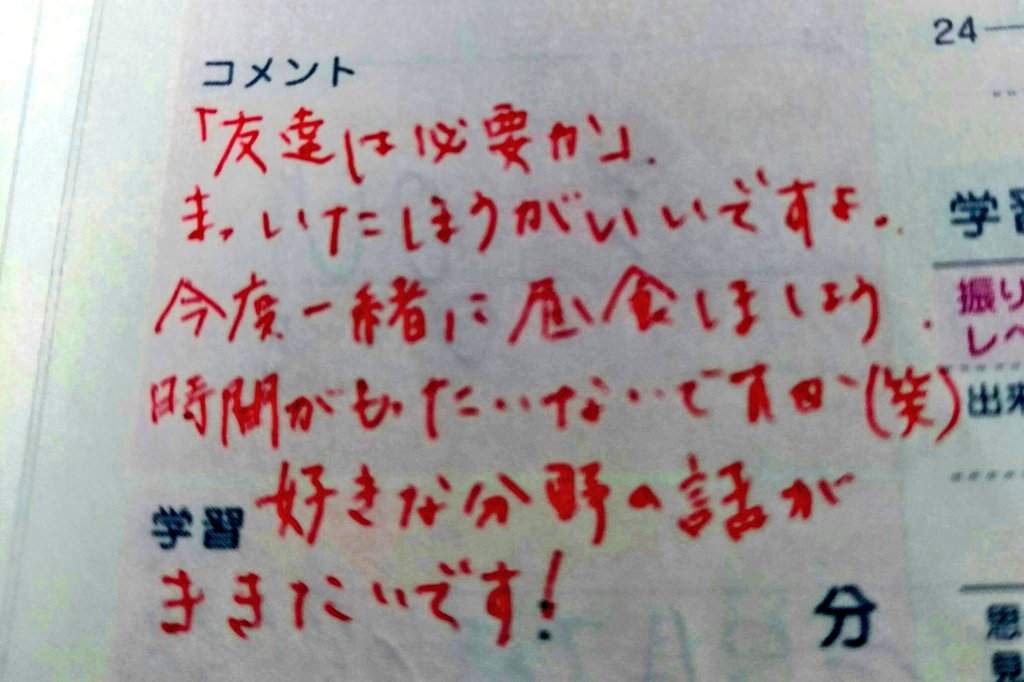 24
コメント
「友達は必要か」.
ま、いたほうがいいですよ.
学習
今度一緒に昼食しましょう.
振り
レベ
時間がもったいないですか(笑)
出来
学習 好きな分野の話が
ききたいです!
分
思
見